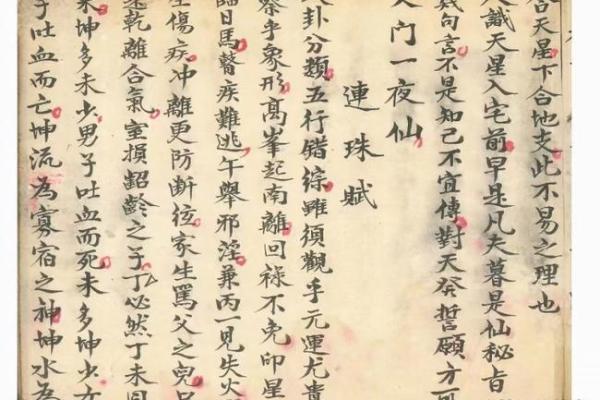 合天星下合地支此不易之理也
人識天星入宅前早是凡夫暮是仙秘旨
幾句言不是知己不宜傳對天發誓願方可
天门一夜仙
連珠賦
八卦分類五行錯綜雖須觀乎元運尤貴
察乎象形高峯起南離回祿不免印星
臨日馬瞽疾難逃午舉邪淫兼丙一見失火
生傷疾冲離更防斷弦家生罵父之兒
連乾離合氣室損齠齡之子丁必然丁未同
未坤多未少男子吐血而死未多坤少女
子吐血而亡坤流為寡宿之神坤水為